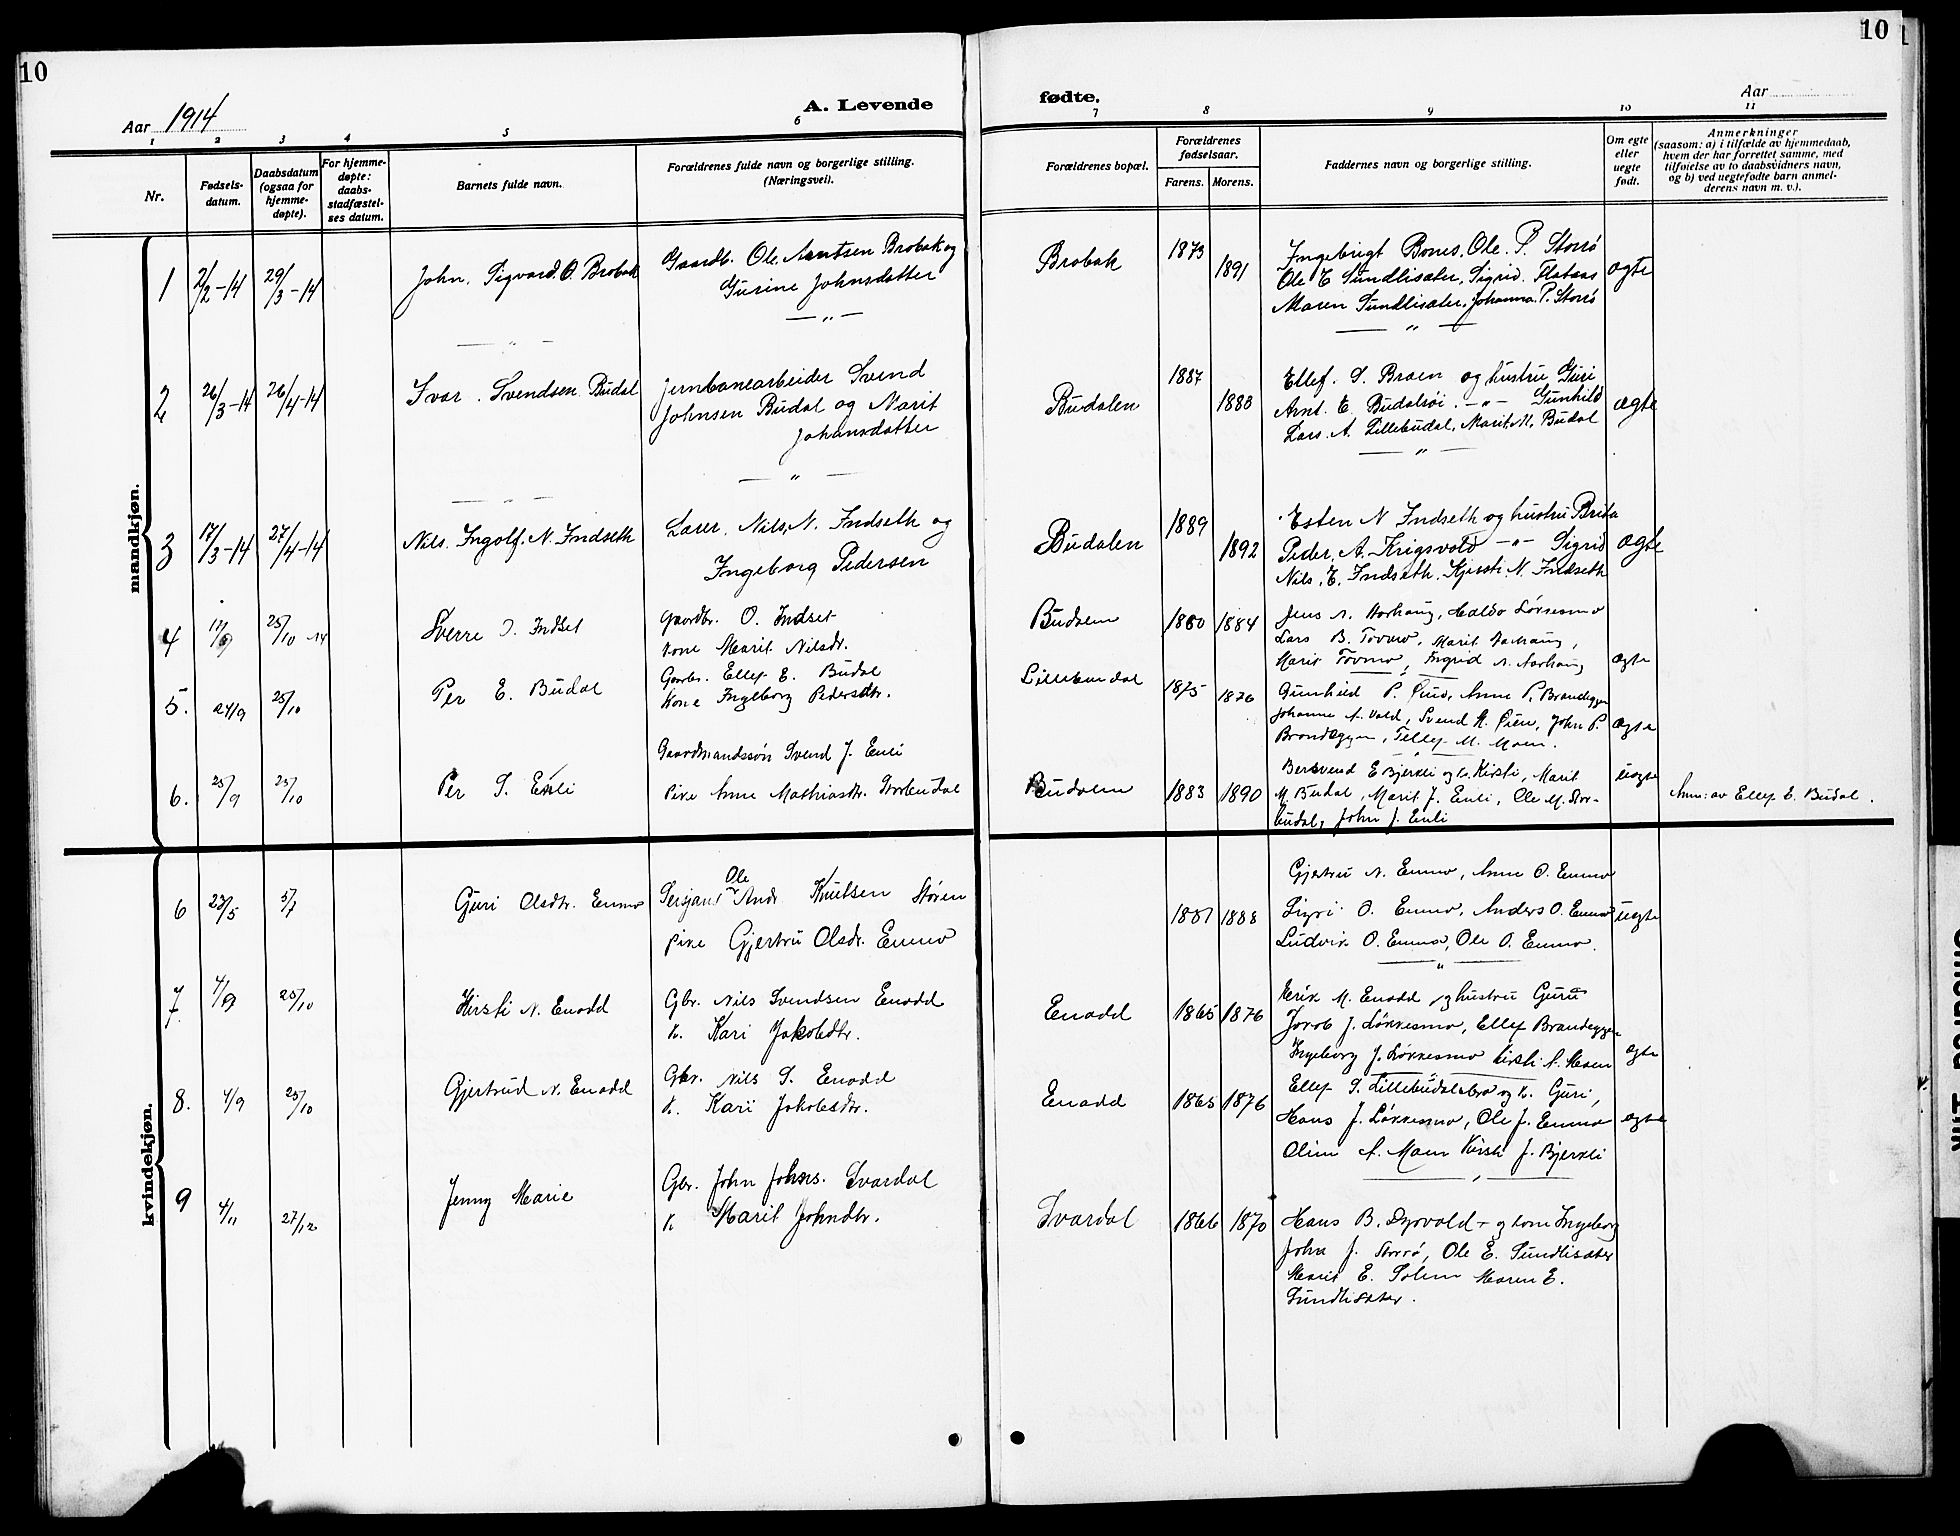 10
10
Aar 1914
A. Levende
fødte.
Aar
1 2 3 4 5 6 7 8 9 10 11
Nr.
Fødsels-
datum.
Daabsdatum
(ogsaa for
hjemme-
døpte).
For hjemme-
døpte:
daabs-
stadfæstel-
ses datum.
Barnets fulde navn.
Forældrenes fulde navn og borgerlige stilling.
(Næringsvei).
Forældrenes bopæl.
Forældrenes
fødselsaar.
Farens. Morens.
Faddernes navn og borgerlige stilling.
Om egte
eller
uegte
født.
Anmerkninger
(saasom: a) i tilfælde av hjemmedaab,
hvem der har forrettet samme, med
tilføielse av to daabsvidners navn,
og b) ved uegtefødte barn anmel-
derens navn m. v.).
mandkjøn.
1 2/2-14 29/3-14 John. Sigvard. O. Brobak
Gaardb. Ole. Arntsen Brobak og
Gurine Johnsdatter
Brobak 1873 1891
Ingebrigt Bones, Ole. P. Storrø
Ole E Sundlisæter, Sigrid. Flataas
Maren Sundlisæter, Johanna. P. Storrø
ægte
2 26/3-14 26/4-14 Ivar. Svendsen Budal
Jernbanearbeider Svend
Johnsen Budal og Marit
Johansdatter
Budalen 1887 1888
Ellef. S. Braen og hustru Guri
Arnt. E. Budalsøi. -"- Gunhild
Lars. A. Lillebudal, Marit. M. Budal
ægte
3 17/3-14 27/4-14 Nils. Ingolf. N. Indseth
Lærer. Nils. N. Indseth og
Ingeborg Pedersen
Budalen 1889 1892
Esten N Indseth og hustru Brita
Peder. A. Krigsvold -"- Sigrid
Nils. E. Indseth. Kjersti. N. Indseth
ægte
4 11/9 25/10 14 Sverre O. Indset
Gaardbr. O. Indset
kone Marit Nilsdr.
Budalen 1880 1884
Jens A. Aarhaug, Haldo Løkkesmo
Lars B. Tovmo, Marit Aarhaug,
Marit Tovmo, Ingrid A. Aarhaug
ægte
5. 24/9 25/10 Per E. Budal
Gaardbr. Ellef E. Budal
Kone Ingeborg Pedersdtr.
Lillebudal 1875 1876
Gunhild P. Anne P. Brandeggen
Johanne A. Vold, Svend A. Øien, John P.
Brandeggen, Tellef M. Moen.
ægte
6. 25/9 25/10 Per S. Enli
Gaardmandssøn Svend J. Enli
Pike Anne Mathiasdtr. Storbudal
Budalen 1883 1890
Bersvend E Bjerkli og k. Kirsti, Marit
M. Budal, Marit J. Enli, Ole M. Stor-
budal, John J. Enli
uegte
Anm: av Ellef E. Budal.
kvindekjøn.
6 23/5 5/7 Guri Olsdtr. Enmo
Sersjant Ole Andr. Knutsen Støren
pike Gjertru Olsdr. Enmo
1887 1888
Gjertru A. Enmo, Anne O. Enmo
Sigri O. Enmo, Anders O. Enmo
Ludvik O. Enmo, Ole O. Enmo.
uegte
7. 4/9 25/10 Kirsti N. Enodd
Gbr. Nils Svendsen Enodd
k. Kari Jakobdtr.
Enodd 1865 1876
Erik M. Enodd og hustru Guru
Jacob J. Løkkesmo, Ellef Brandeggen
Ingeborg J. Løkkesmo Kirsti A. Moen
egte
8. 4/9 25/10 Gjertrud N. Enodd
Gbr. Nils S. Enodd
k. Kari Jakobsdtr.
Enodd 1865 1876
Ellef S. Lillebudalsbro og k. Guri,
Hans J. Løkkesmo, Ole J. Enmo
Oline A. Moen Kirsti J. Bjerkli
egte
9 4/11 27/12 Jenny Marie
Gbr. John Johns. Svardal
k Marit Johndtr.
Svardal 1866 1870
Hans B. Dyrvold og kone Ingeborg
John J. Storrø, Ole E. Sundlisæter
Marit E. Solem Maren E.
Sundlisæter.